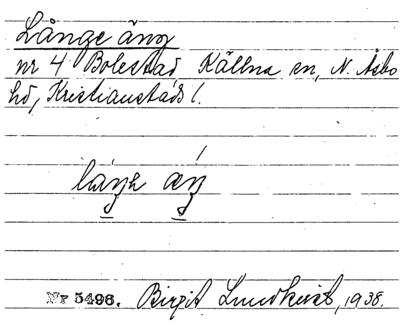 Långe äng
nr 4 Bolestad, Källna sn, N. Åsbo
hd, Kristianstads l.
Nr 5496. Birgit Lundkvist, 1938.